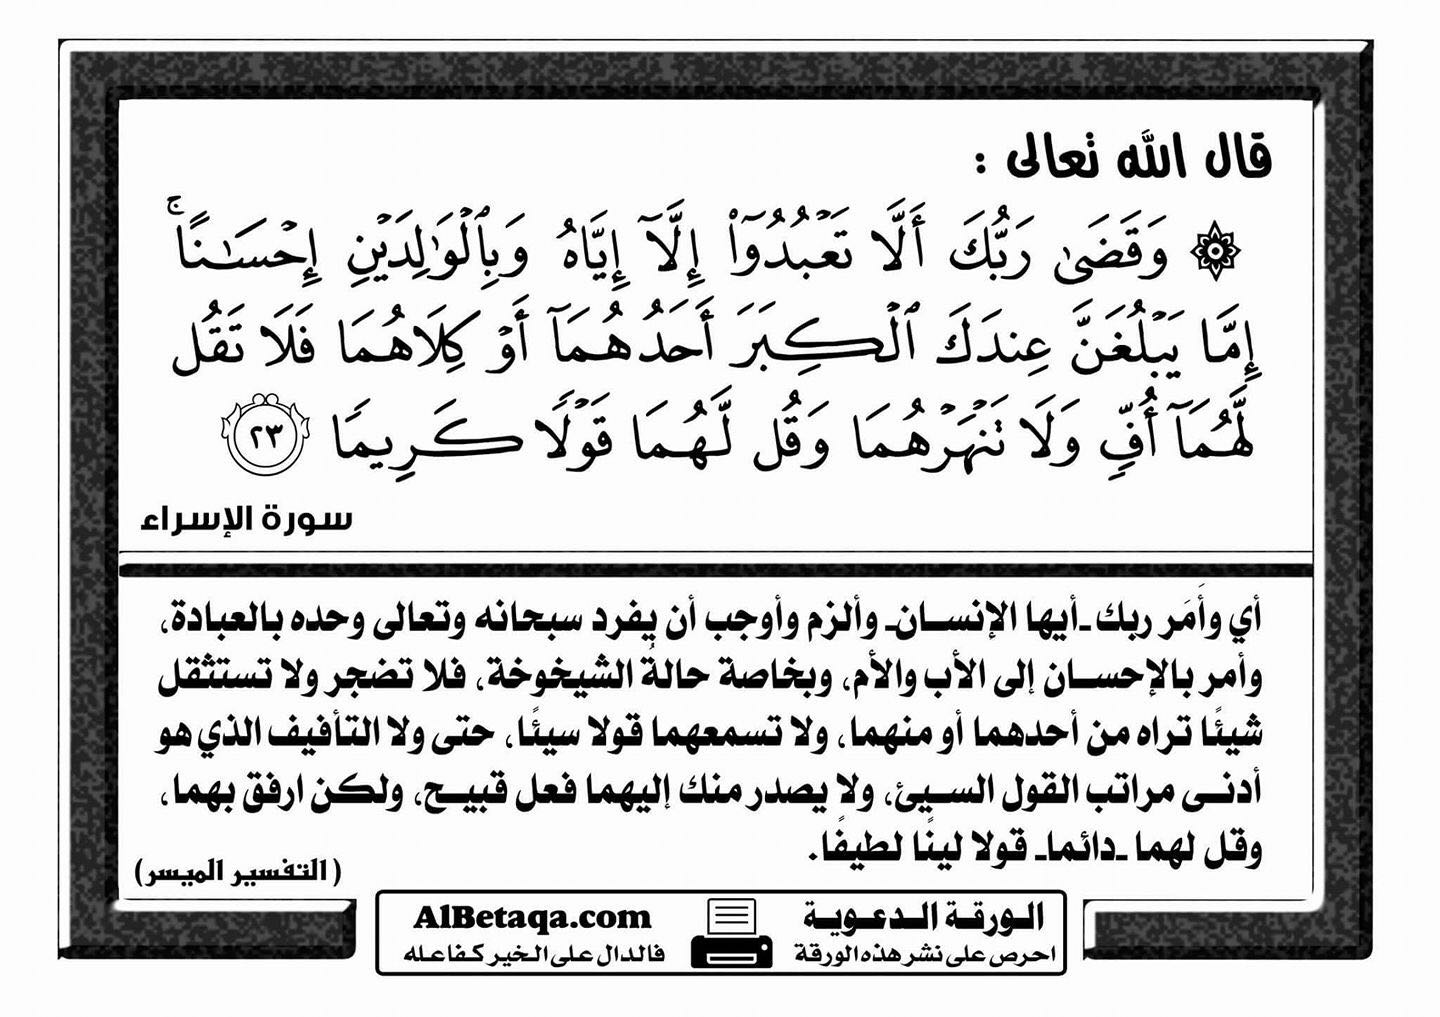 قال الله تعالى :
۞ وَقَضَىٰ رَبُّكَ أَلَّا تَعۡبُدُوٓاْ إِلَّآ إِيَّاهُ وَبِٱلۡوَٰلِدَيۡنِ إِحۡسَٰنًاۚ
إِمَّا يَبۡلُغَنَّ عِندَكَ ٱلۡكِبَرَ أَحَدُهُمَآ أَوۡ كِلَاهُمَا فَلَا تَقُل
لَّهُمَآ أُفّٖ وَلَا تَنۡهَرۡهُمَا وَقُل لَّهُمَا قَوۡلٗا كَرِيمٗا ٢٣
سورة الإسراء
أي وأَمَر ربك ـأيها الإنســانـ وألزم وأوجب أن يفرد سبحانه وتعالى وحده بالعبادة،
وأمر بالإحســان إلى الأب والأم، وبخاصة حالةُ الشيخوخة، فلا تضجر ولا تستثقل
شيئًا تراه من أحدهما أو منهما، ولا تسمعهما قولا سيئًا، حتى ولا التأفيف الذي هو
أدنــى مراتب القول الســيئ، ولا يصدر منك إليهما فعل قبيــح، ولكن ارفق بهما،
وقل لهما ـدائماـ قولا لينًا لطيفًا.
(التفسير الميسر)
الـورقـة الـدعـويـة
احرص على نشر هذه الورقة
AlBetaqa.com
فالدال على الخير كفاعله